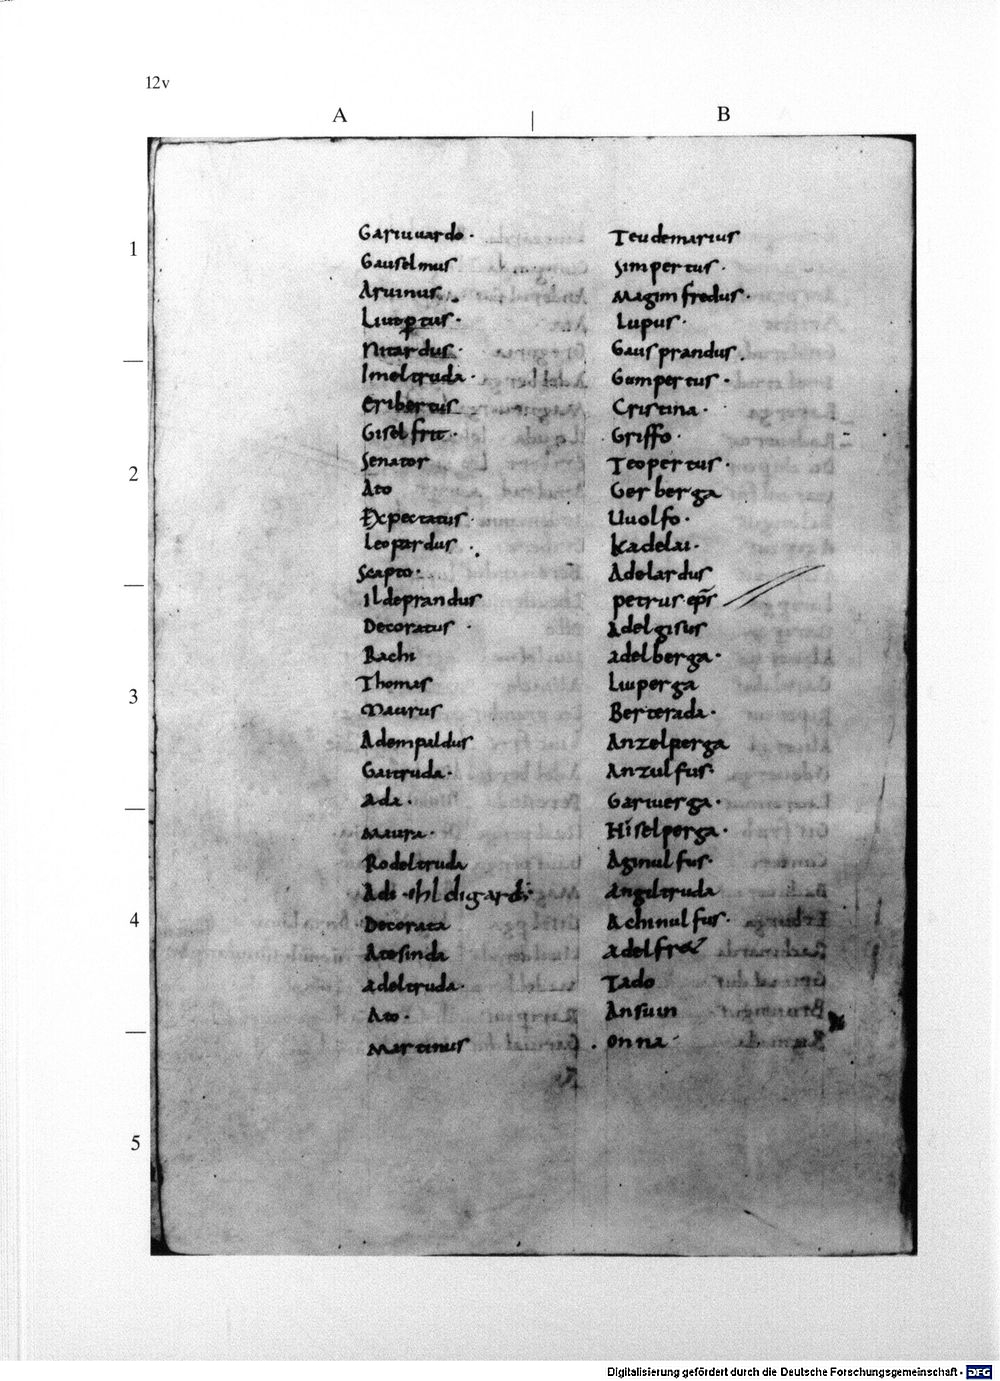 12v
A
B
1
2
3
4
5
Gariuuardo ·
Gauselmus
Aruinus
Liutꝑtus ·
Nitardus ·
Imeltruda ·
Eribertus
Giselfrit ·
Senator
Ato
Expectatus ·
Leopardus ·
Scapto ·
Ildeprandus
Decoratus ·
Rachi
Thomas
Maurus
Adempaldus
Gaitruda ·
Ada ·
Maura ·
Rodeltruda
Decorata
Atesinda
Adeltruda ·
Ato ·
Martinus
Teudemarius
Simpertus ·
Maginfredus ·
Lupus ·
Gausprandus ·
Gumpertus ·
Cristina ·
Griffo ·
Teopertus ·
Gerberga
Uuolfo ·
Kadelai ·
Adelardus
petrus ep̅s
Adelgisus
adelberga ·
Liuperga
Berterada ·
Anzelperga
Anzulfus ·
Gariuerga ·
Hiselperga ·
Aginulfus ·
Angeltruda
Achinulfus ·
Tado
Ansuin
Onna ·
Digitalisierung gefördert durch die Deutsche Forschungsgemeinschaft - DFG